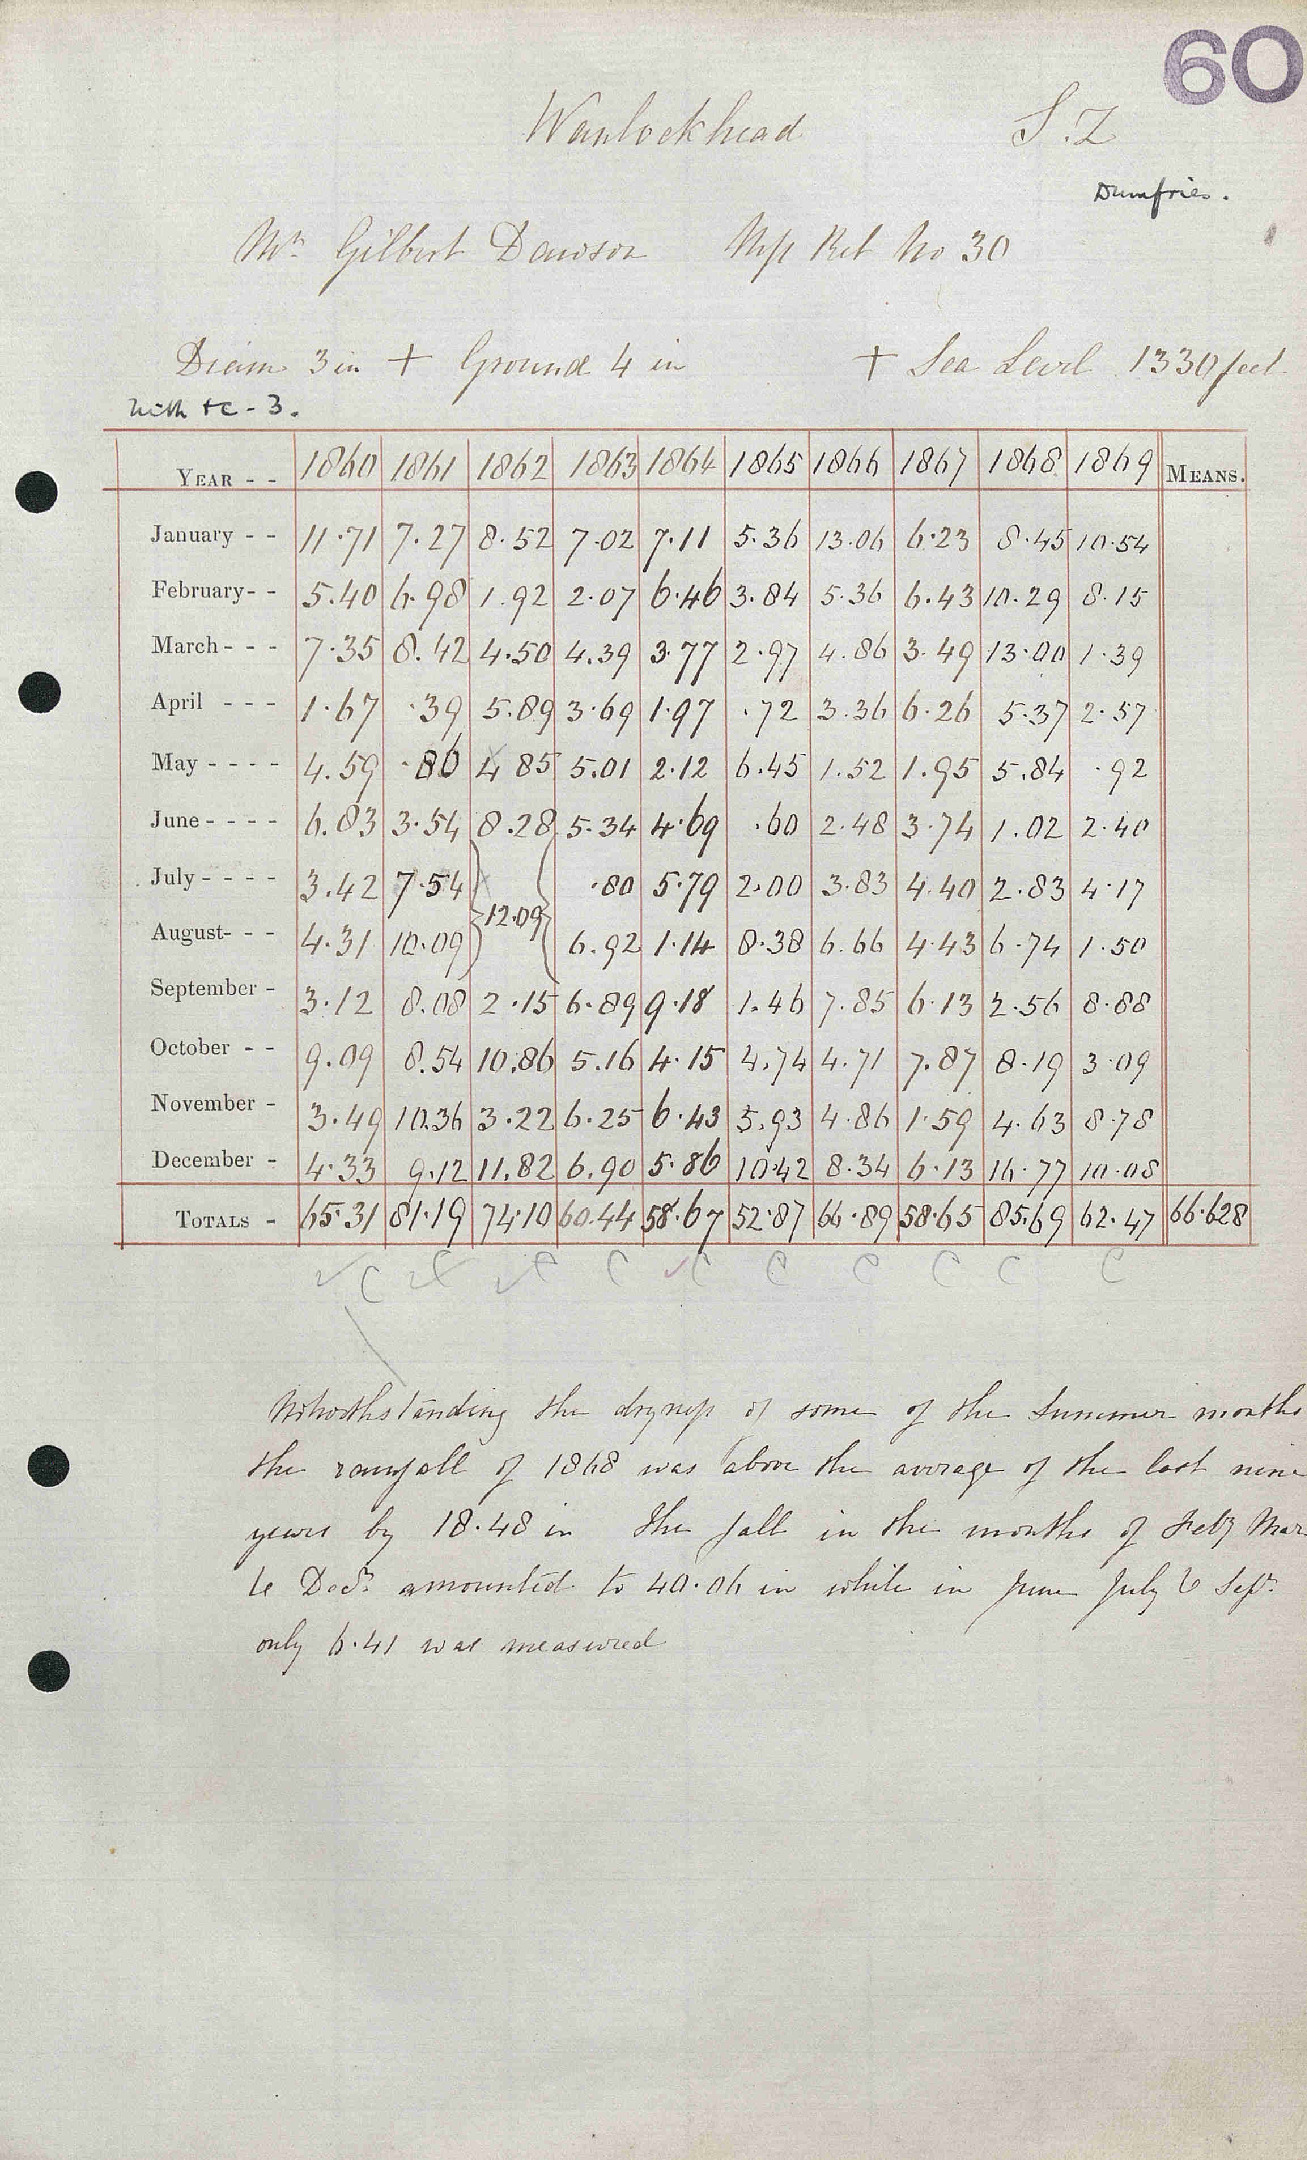 60
Wanlockhead S.Z
Dumfries.
Mr Gilbert Dawson M/s Ret No 30
Diam 3 in + Ground 4 in + Sea Level 1330 feet
with tc - 3.
YEAR - - 1860 1861 1862 1863 1864 1865 1866 1867 1868 1869 MEANS.
January - - 11.71 7.27 8.52 7.02 7.11 5.36 13.06 6.23 8.45 10.54
February - - 5.40 6.98 1.92 2.07 6.46 3.84 5.36 6.43 10.29 8.15
March - - - 7.35 8.42 4.50 4.39 3.77 2.97 4.86 3.49 13.00 1.39
April - - - 1.67 .39 5.89 3.69 1.97 .72 3.36 6.26 5.37 2.57
May - - - - 4.59 .86 4 85 5.01 2.12 6.45 1.52 1.95 5.84 .92
June - - - - 6.83 3.54 8.28 5.34 4.69 .60 2.48 3.74 1.02 2.40
July - - - - 3.42 7.54 .80 5.79 2.00 3.83 4.40 2.83 4.17
12.09
August - - - 4.31 10.09 6.92 1.14 8.38 6.66 4.43 6.74 1.50
September - 3.12 8.08 2.15 6.89 9.18 1.46 7.85 6.13 2.56 8.88
October - - 9.09 8.54 10.86 5.16 4.15 4.74 4.71 7.87 8.19 3.09
November - 3.49 10.36 3.22 6.25 6.43 5.93 4.86 1.59 4.63 8.78
December - 4.33 9.12 11.82 6.90 5.86 10.42 8.34 6.13 16.77 10.08
TOTALS - 65.31 81.19 74.10 60.44 58.67 52.87 66.89 58.65 85.69 62.47 66.628
C C C C C C C C C C
Notwithstanding the dryness of some of the Summer months
the rainfall of 1868 was above the average of the last nine
years by 18.48 in The fall in the months of Feby Mar
& Decr amounted to 40.06 in while in June July & Sept
only 6.41 was measured